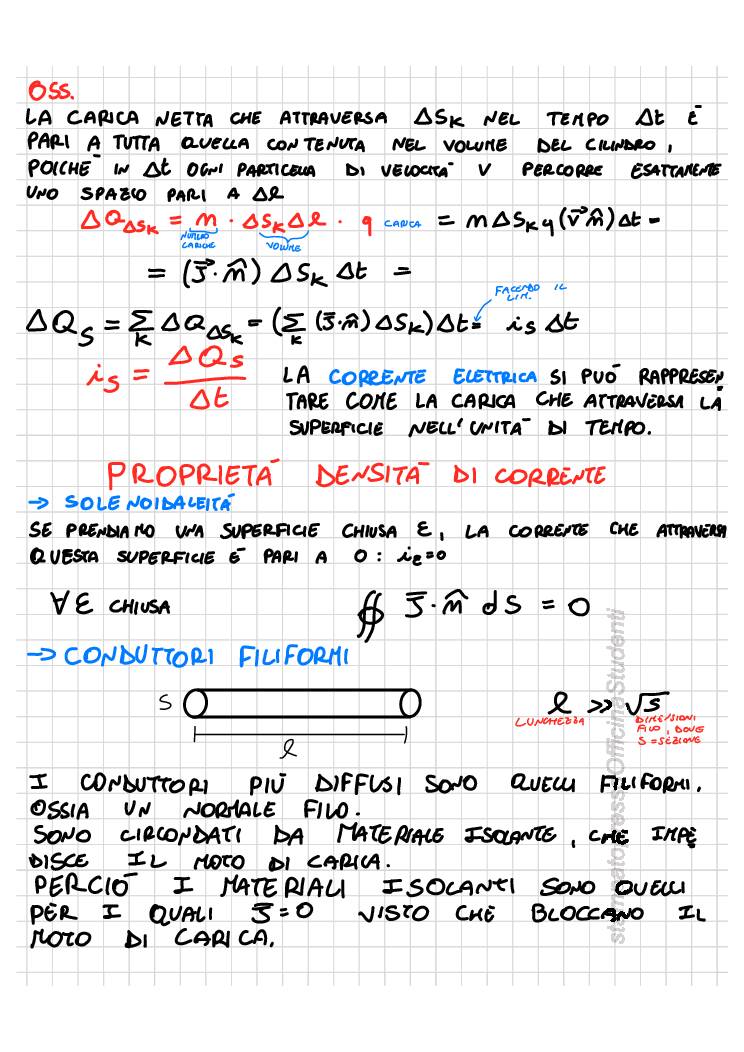 OSS.
LA CARICA NETTA CHE ATTRAVERSA ΔSₖ NEL TEMPO Δt È
PARI A TUTTA QUELLA CONTENUTA NEL VOLUME DEL CILINDRO,
POICHÈ IN Δt OGNI PARTICELLA DI VELOCITÀ V PERCORRE ESATTAMENTE
UNO SPAZIO PARI A Δl
ΔQ_ΔSₖ = n · ΔSₖΔl · q CARICA = nΔSₖq(v⃗n̂)Δt =
NUMERO CARICHE
VOLUME
= (J⃗·n̂) ΔSₖ Δt =
FACENDO IL LIM.
ΔQ_S = Σ_K ΔQ_ΔSₖ = (Σ_K (J̄·n̂)ΔSₖ)Δt = i_S Δt
i_S = ΔQ_S / Δt
LA CORRENTE ELETTRICA SI PUÒ RAPPRESEN
TARE COME LA CARICA CHE ATTRAVERSA LA
SUPERFICIE NELL'UNITÀ DI TEMPO.
PROPRIETÀ DENSITÀ DI CORRENTE
→ SOLENOIDALEITÀ
SE PRENDIAMO UNA SUPERFICIE CHIUSA Ɛ, LA CORRENTE CHE ATTRAVERSA
QUESTA SUPERFICIE È PARI A 0: i_Ɛ=0
∀Ɛ CHIUSA ∯ J̄·n̂ dS = 0
→ CONDUTTORI FILIFORMI
S
l
l >> √S
LUNGHEZZA
DIMENSIONI
FILO, DOVE
S = SEZIONE
I CONDUTTORI PIÙ DIFFUSI SONO QUELLI FILIFORMI.
OSSIA UN NORMALE FILO.
SONO CIRCONDATI DA MATERIALE ISOLANTE, CHE IMPE
DISCE IL MOTO DI CARICA.
PERCIÒ I MATERIALI ISOLANTI SONO QUELLI
PER I QUALI J̄=0 VISTO CHE BLOCCANO IL
MOTO DI CARICA.
stampato presso OfficinaStudenti